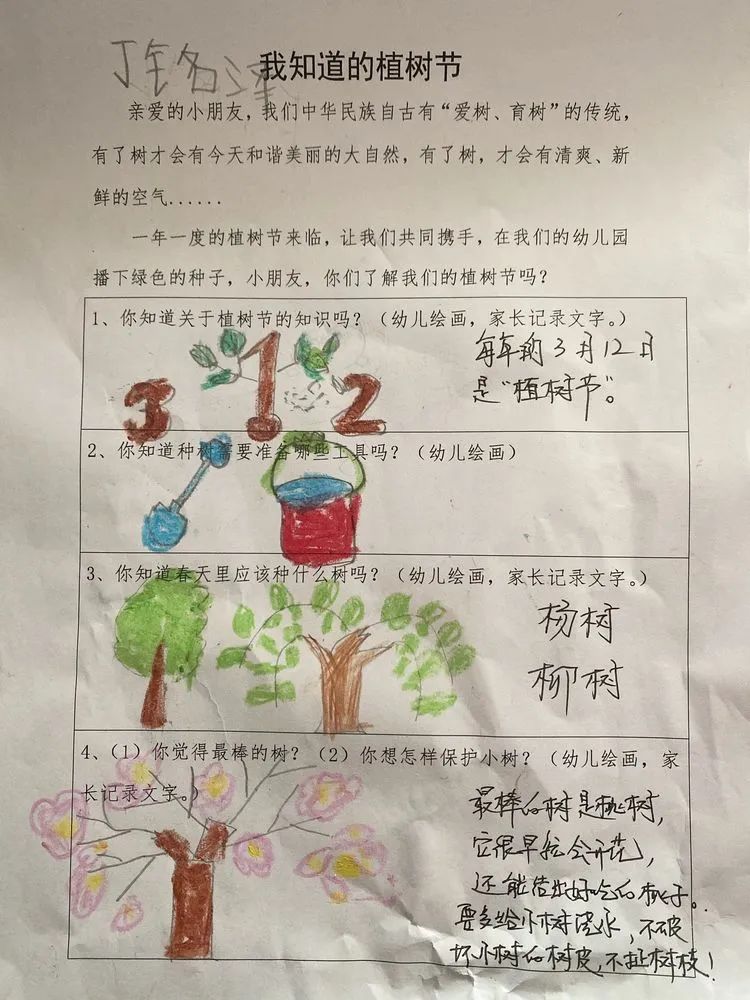 丁钰名泽
我知道的植树节
亲爱的小朋友，我们中华民族自古有“爱树、育树”的传统，
有了树才会有今天和谐美丽的大自然，有了树，才会有清爽、新
鲜的空气......
一年一度的植树节来临，让我们共同携手，在我们的幼儿园
播下绿色的种子，小朋友，你们了解我们的植树节吗？
1、你知道关于植树节的知识吗？（幼儿绘画，家长记录文字。）
每年的3月12日
是“植树节”。
3 12
2、你知道种树需要准备哪些工具吗？（幼儿绘画）
3、你知道春天里应该种什么树吗？（幼儿绘画，家长记录文字。）
杨树
柳树
4、（1）你觉得最棒的树？（2）你想怎样保护小树？（幼儿绘画，家
长记录文字。）
最棒的树是桃树，
它很早就会开花，
还能结出好吃的桃子。
要多给小树浇水，不破
坏小树的树皮，不扯树枝！